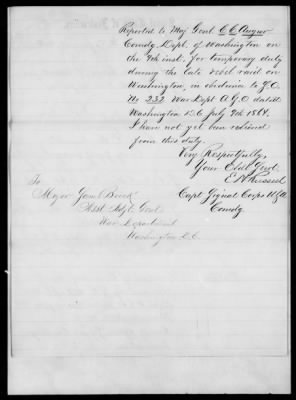 Reported to Maj Genl C C Augur
Comdg Dept. of Washington on
the 9th inst. for temporary duty
during the late rebel raid on
Washington, in obedience to S.O.
No 232 War Dept A.G.O dated
Washington D.C July 9th 1864.
I have not yet been relieved
from this duty.
Very Respectfully,
Your Obdt Servt
Capt Signal Corps USA
Comdg.
To
Major
Asst Adjt Genl
War Department
Washington D.C.